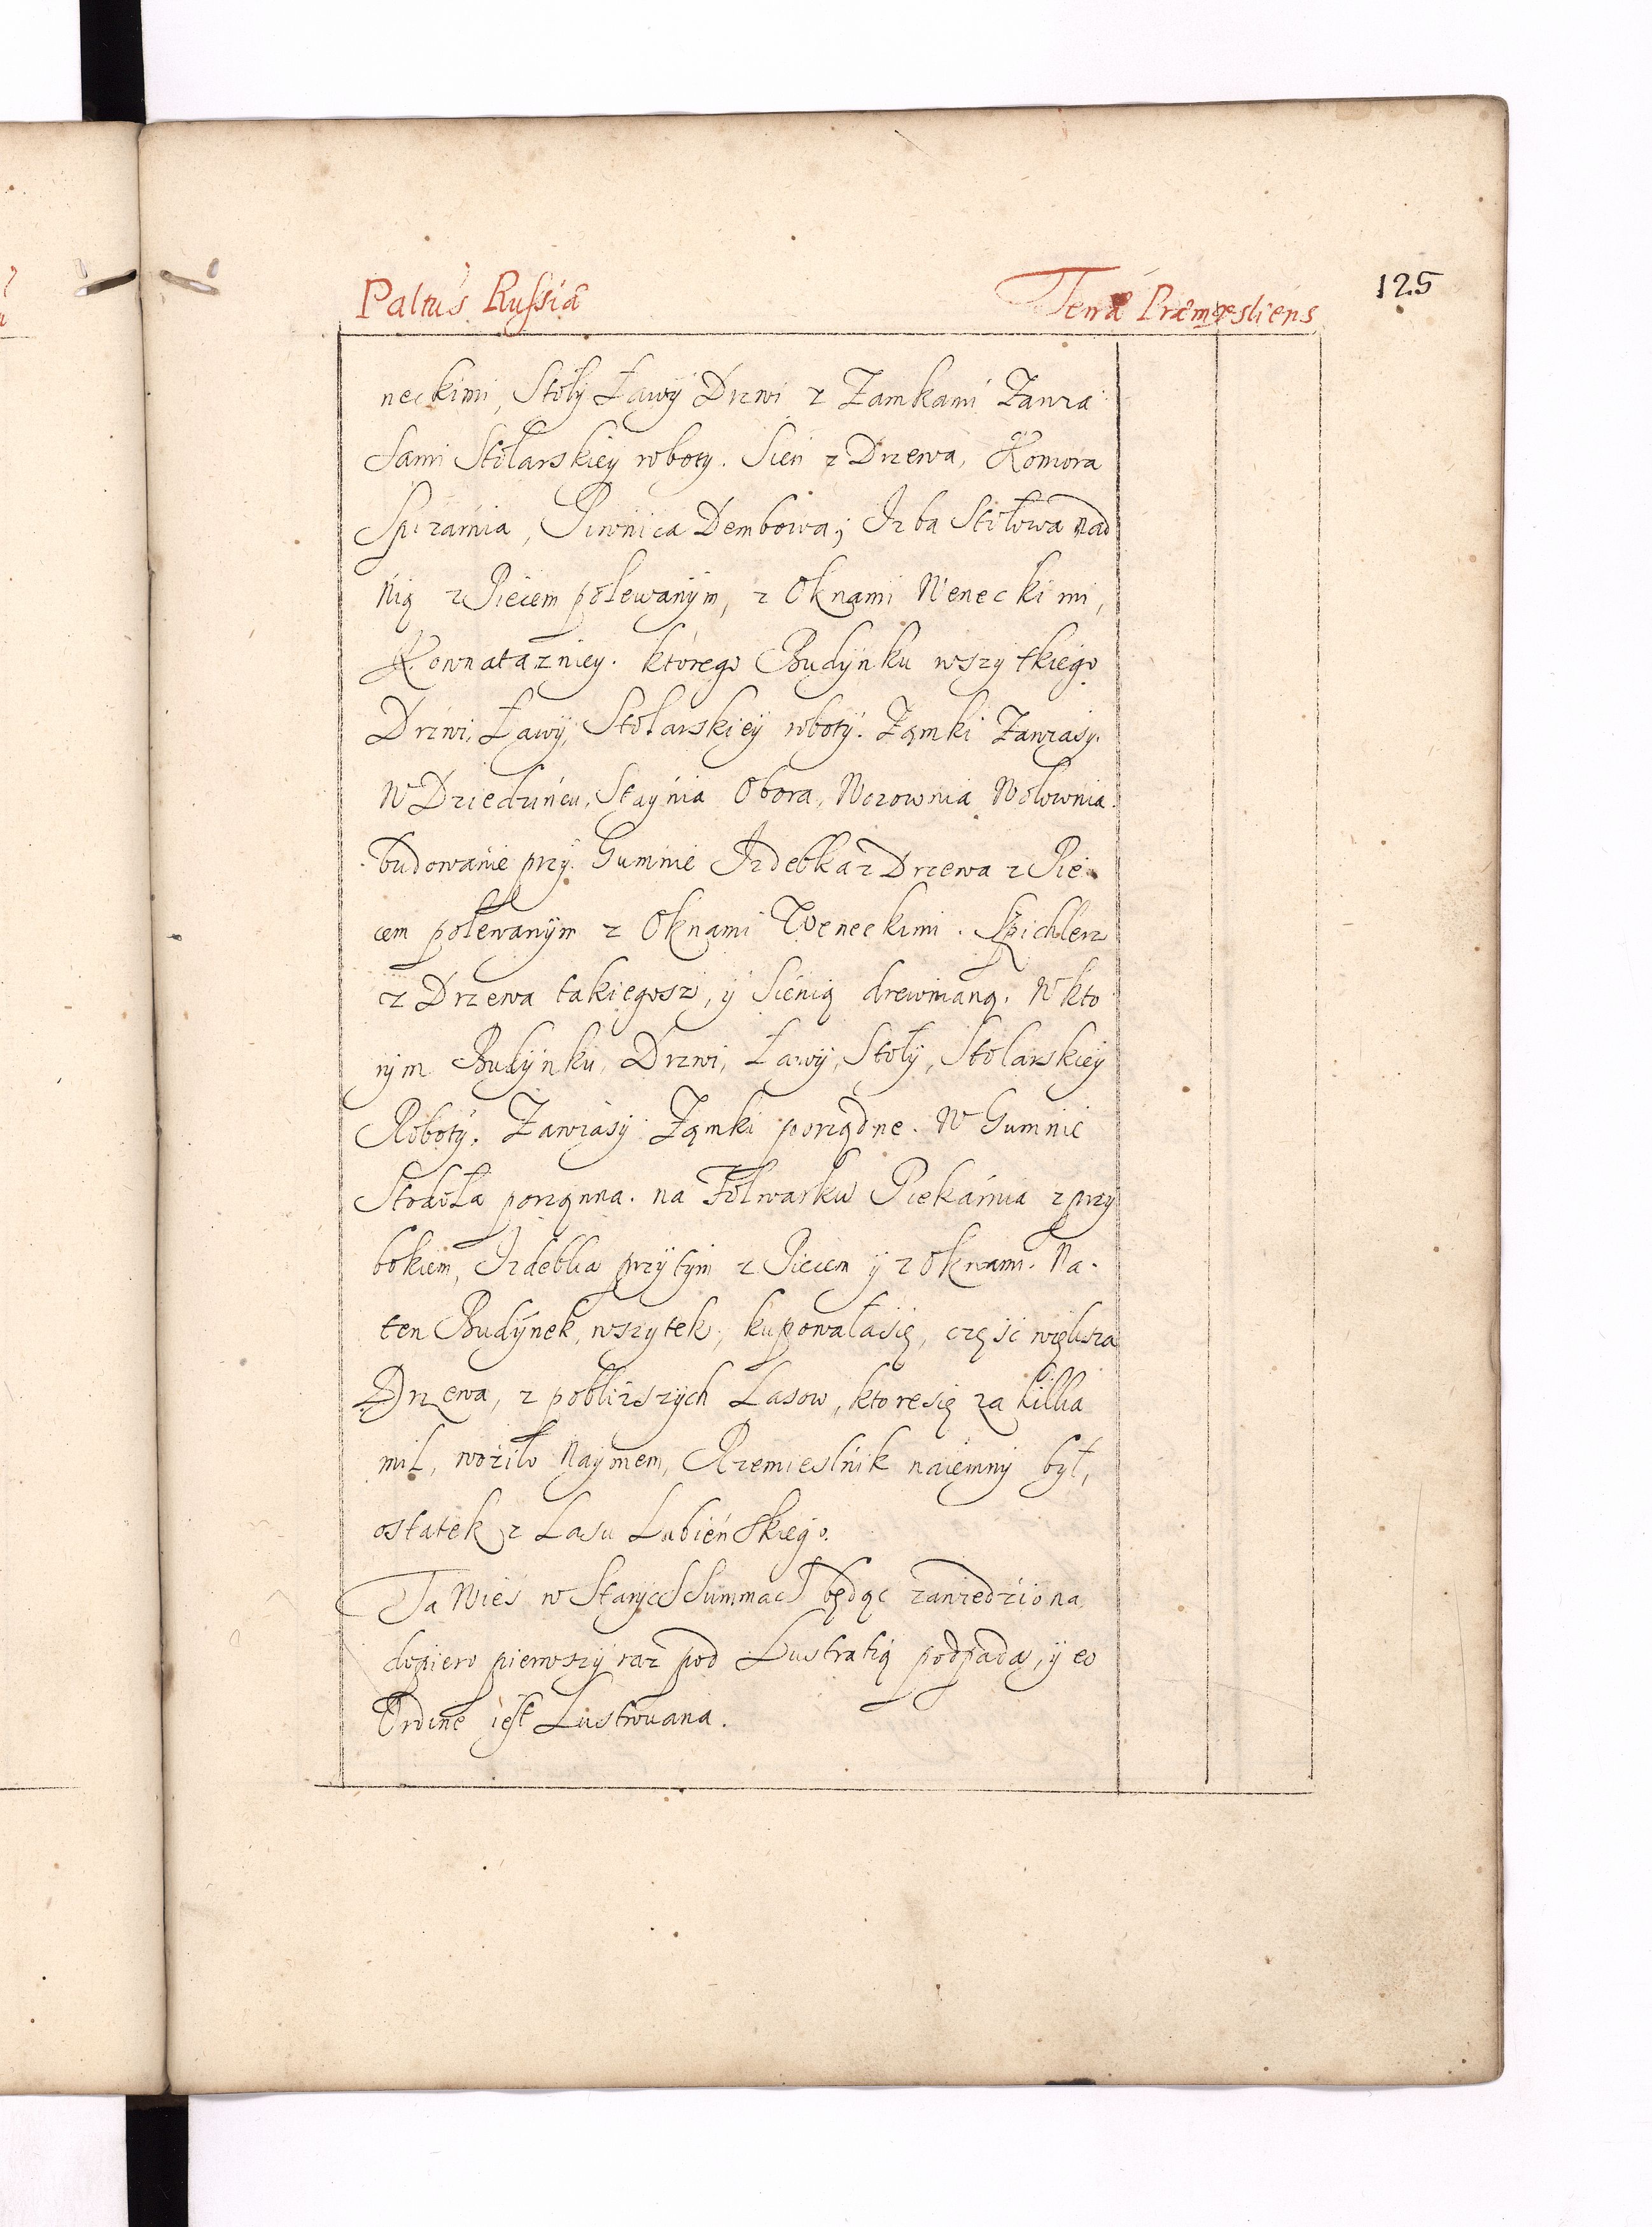 Paltus Russiæ
Terræ Præmysliens
125
neckimi, Stoły Ławy Drzwi z Zamkami Zawia
sami Stolarskiey roboty. Sień z Drzewa, Komora
Spizarnia, Piwnica Dembowa; Izba Stołowa nad
nią z Piecem polewanym, z Oknami Weneckimi,
Kownata z niey. ktorego Budynku wszytkiego
Drzwi, Ławy, Stolarskiey roboty. Zamki Zawiasy.
W Dziedzińcu, Staynia Obora, Wozownia Wołownia.
budowanie przy Gumnie Izdebka z Drzewa z Pie
cem polewanym z Oknami Weneckimi. Spichlerz
z Drzewa takiegosz, y Sienią drewnianą. W kto
rym Budynku, Drzwi, Ławy, Stoły, Stolarskiey
Roboty. Zawiasy Zamki porządne. W Gumnie
Stodoła porządna. na Folwarku Piekarnia z przy
bokiem, Izdebka przytym z Piecem y z Oknami. Na
ten Budynek, wszytek, kupowała się, część większa
Drzewa, z pobliższych Lasow, ktore się za kilka
mil, woziło Naymem, Rzemieslnik naiemny był,
ostatek z Lasu Lubieńskiego.
Ta Wieś w Starych Summach będąc zawiedziona
dopiero pierwszy raz pod Lustratią podpada, y eo
Ordine iest Lustrowana.